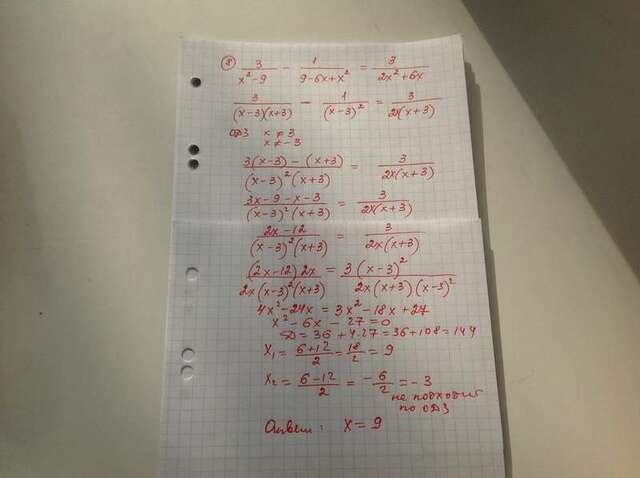 ⑧ 3/(x²-9) - 1/(9-6x+x²) = 3/(2x²+6x)
3/((x-3)(x+3)) - 1/(x-3)² = 3/(2x(x+3))
ОДЗ x≠3
x≠-3
(3(x-3) - (x+3))/((x-3)²(x+3)) = 3/(2x(x+3))
(3x-9-x-3)/((x-3)²(x+3)) = 3/(2x(x+3))
(2x-12)/((x-3)²(x+3)) = 3/(2x(x+3))
((2x-12)2x)/(2x(x-3)²(x+3)) = (3(x-3)²)/(2x(x+3)(x-3)²)
4x²-24x = 3x²-18x+27
x²-6x-27=0
D=36+4·27=36+108=144
x₁ = (6+12)/2 = 18/2 = 9
x₂ = (6-12)/2 = -6/2 = -3
не подходит
по ОДЗ
Ответ: x=9